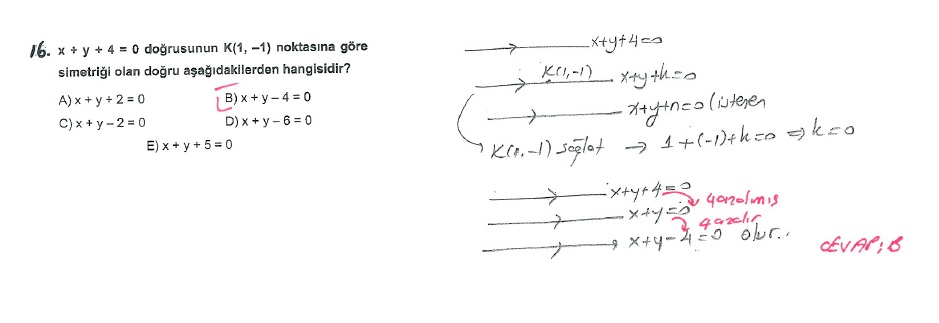 16. x + y + 4 = 0 doğrusunun K(1, –1) noktasına göre
simetriği olan doğru aşağıdakilerden hangisidir?
A) x + y + 2 = 0 B) x + y – 4 = 0
C) x + y – 2 = 0 D) x + y – 6 = 0
E) x + y + 5 = 0
x+y+4=0
K(1,-1) x+y+k=0
x+y+n=0 (istenen
K(1,-1) sağlat → 1+(-1)+k=0 ⇒ k=0
x+y+4=0
4 azalmış
x+y=0
4 azalır
x+y-4=0 olur..
CEVAP: B